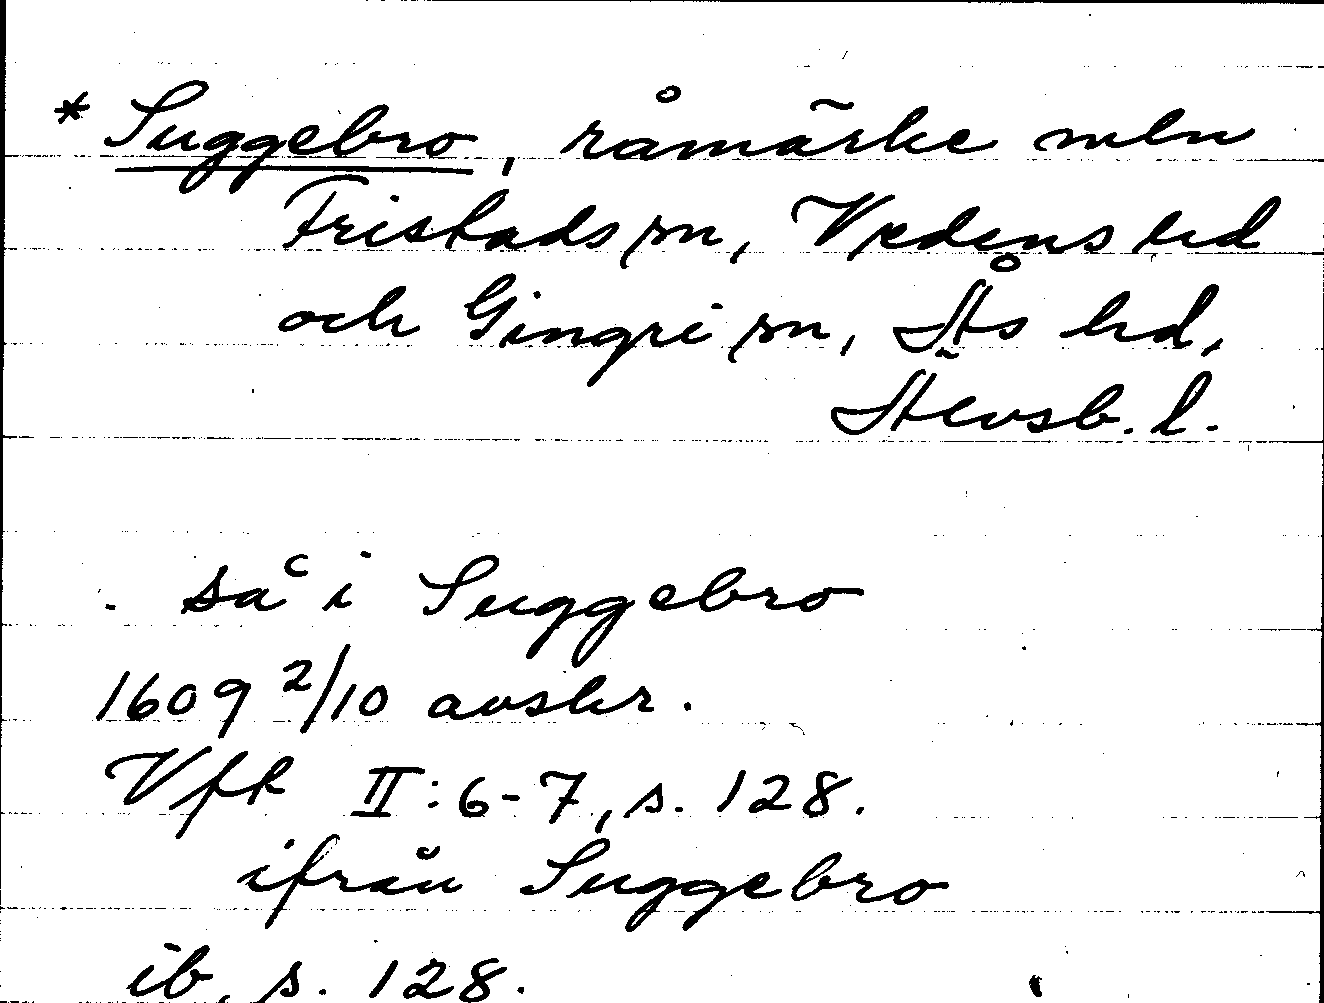 * Suggebro, råmärke mln
Fristads sn, Vedens hd
och Gingri sn, Ås hd,
Älvsb. l.
så i Suggebro
1609 2/10 avskr.
Vfk II:6-7, s. 128.
ifrån Suggebro
ib. s. 128.